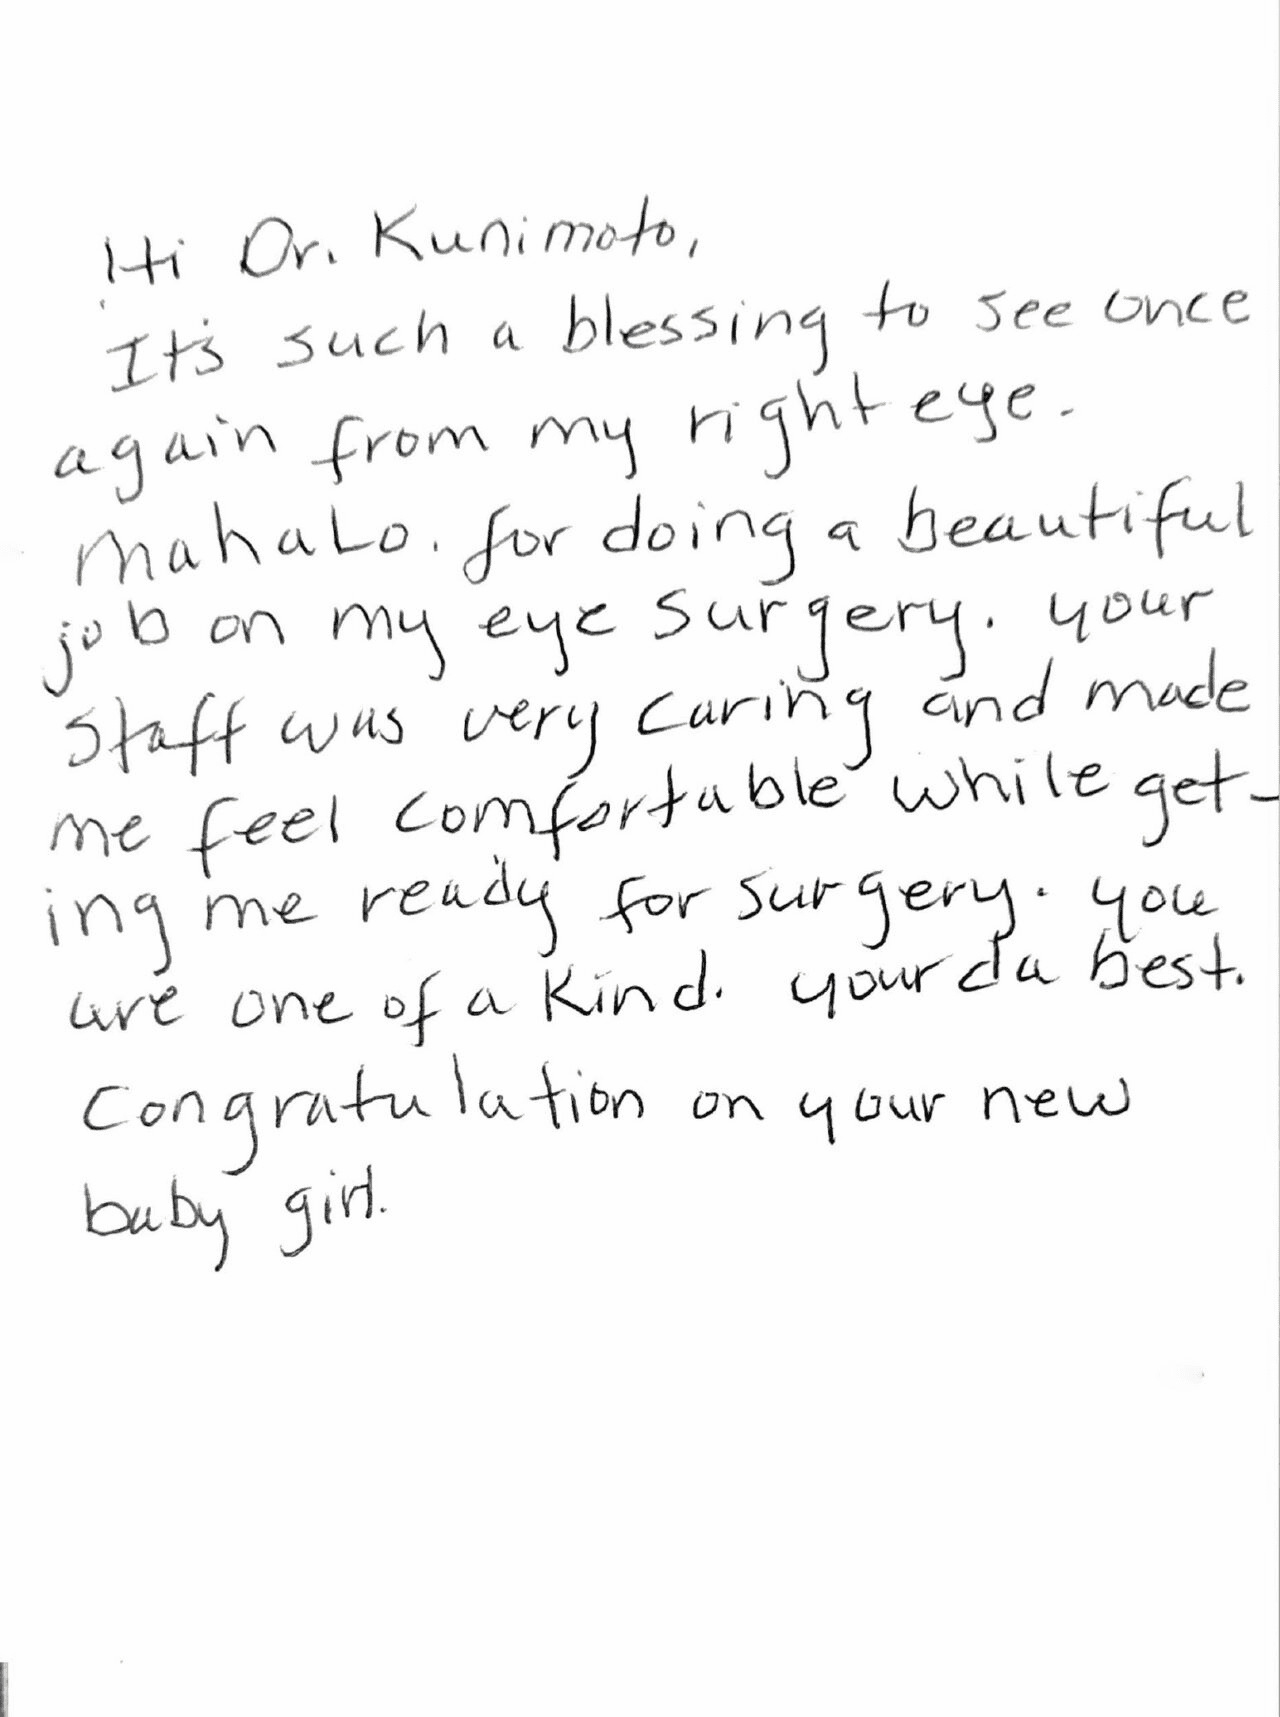 Hi Dr. Kunimoto,
It's such a blessing to see once
again from my right eye.
Mahalo. for doing a beautiful
job on my eye surgery. your
staff was very caring and made
me feel comfortable while get-
ing me ready for surgery. you
are one of a kind. your da best.
Congratulation on your new
baby girl.